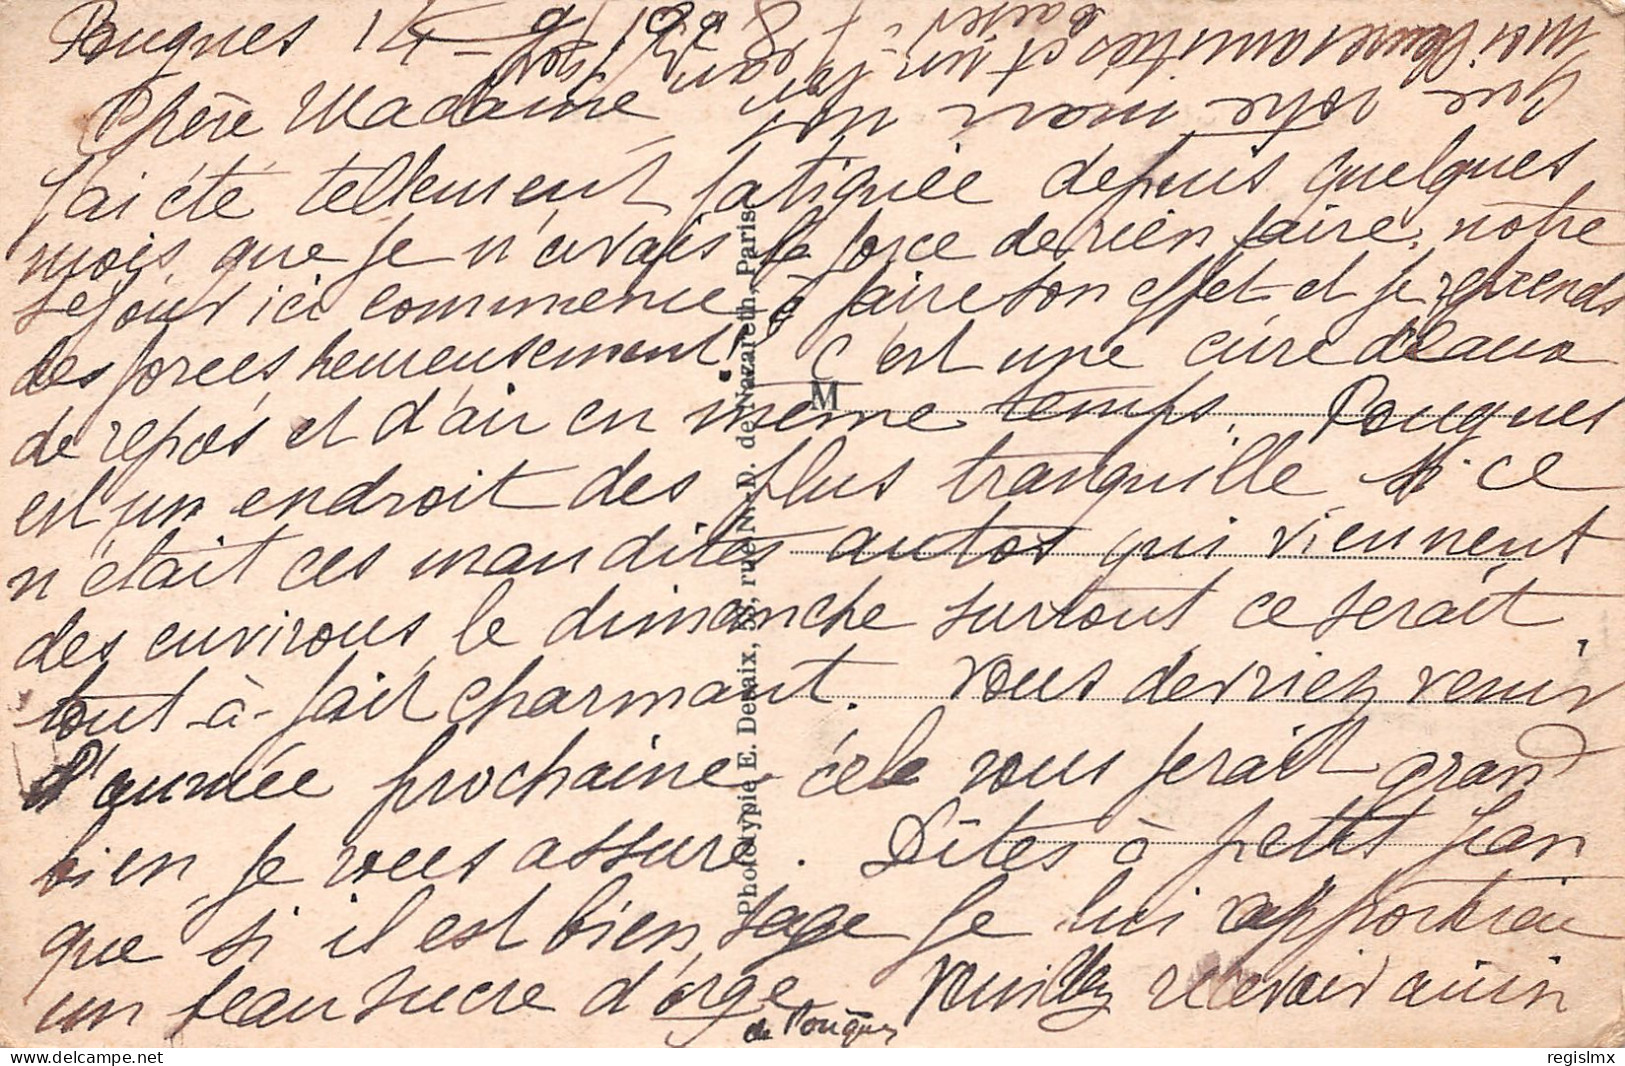 Pougues 14
Chère Madame,
J'ai été tellement fatiguée depuis quelques
mois, que je n'avais la force de rien faire, notre
séjour ici commence à faire son effet et je reprends
des forces heureusement, c'est une cure d'eaux
de repos et d'air en même temps. Pougues
est un endroit des plus tranquille si ce
n'était ces maudites autos qui viennent
des environs le dimanche surtout ce serait
tout-à-fait charmant. Vous devriez venir
l'année prochaine cela vous ferait grand
bien, je vous assure. Dîtes à petit Jean
que si il est bien sage je lui rapporterai
un beau sucre d'orge de Pougues Veuillez recevoir ainsi
que votre mari
M
Phototypie E. Desaix, rue N.-D. de Nazareth, Paris
regislmx